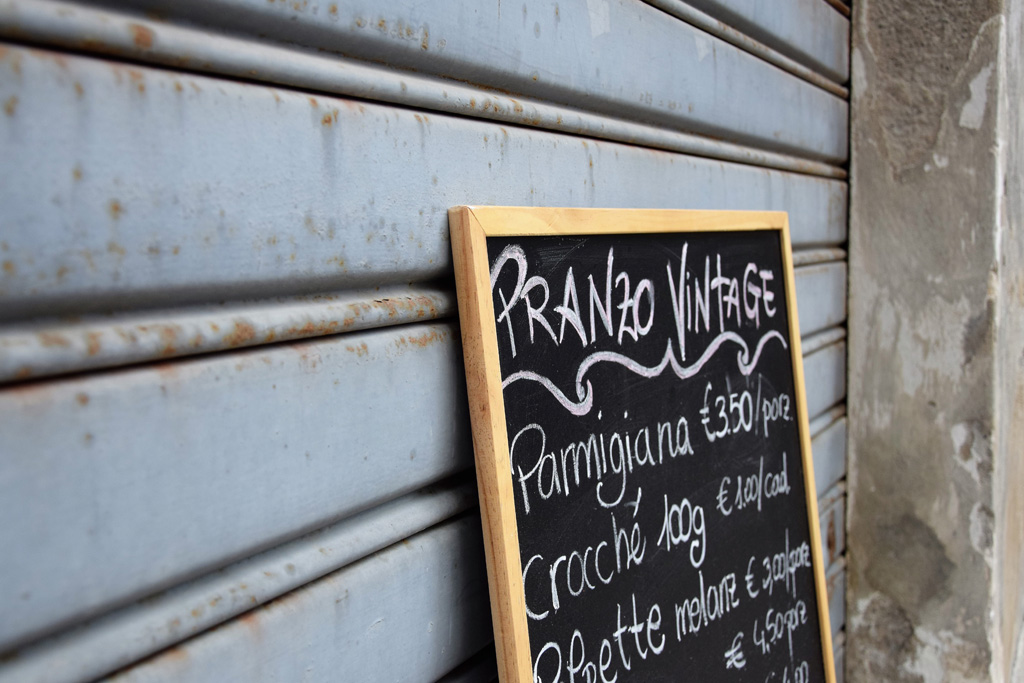 PRANZO VINTAGE
Parmigiana €3.50/porz.
Crocché 100g €1.00/cad.
Polpette melanz €3,00/porz
€ 4,50 porz